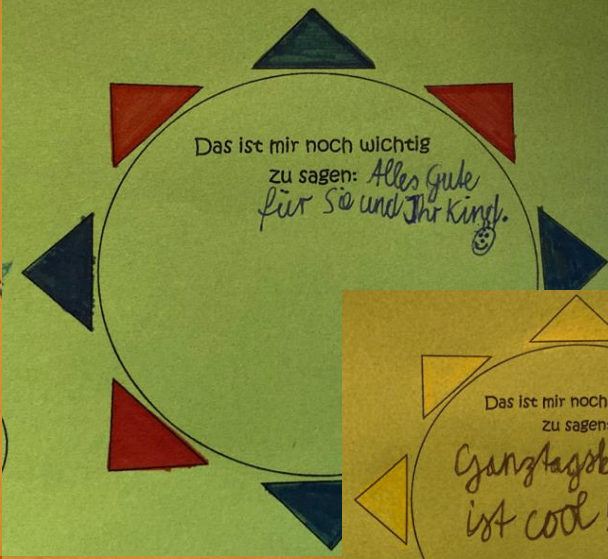 Das ist mir noch wichtig
zu sagen: Alles Gute
für Sie und Ihr Kind.
Das ist mir noch
zu sagen:
ist cool